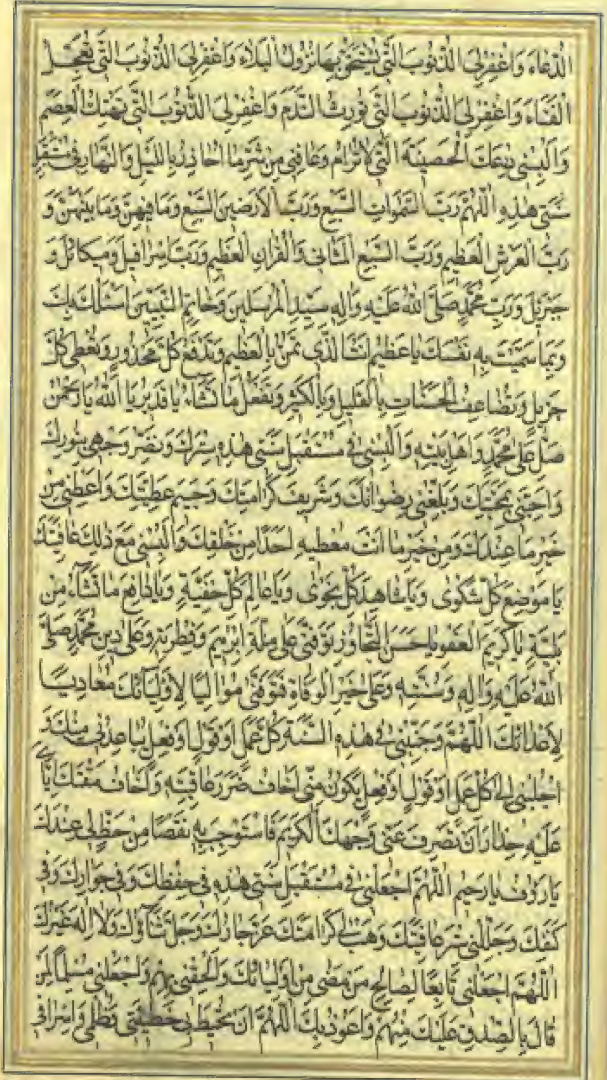 الدُّعَاءَ وَاغْفِرْ لِيَ الذُّنُوبَ الَّتِي يُسْتَحَقُّ بِهَا نُزُولُ الْبَلَاءِ وَاغْفِرْ لِيَ الذُّنُوبَ الَّتِي تُعَجِّلُ
الْفَنَاءَ وَاغْفِرْ لِيَ الذُّنُوبَ الَّتِي تُورِثُ النَّدَمَ وَاغْفِرْ لِيَ الذُّنُوبَ الَّتِي تَهْتِكُ الْعِصَمَ
وَأَلْبِسْنِي دِرْعَكَ الْحَصِينَةَ الَّتِي لَا تُرَامُ وَعَافِنِي مِنْ شَرِّ مَا أُحَاذِرُ بِاللَّيْلِ وَالنَّهَارِ فِي مُسْتَقْبَلِ
سَنَتِي هَذِهِ اللَّهُمَّ رَبَّ السَّمَوَاتِ السَّبْعِ وَرَبَّ الْأَرَضِينَ السَّبْعِ وَمَا فِيهِنَّ وَمَا بَيْنَهُنَّ وَ
رَبَّ الْعَرْشِ الْعَظِيمِ وَرَبَّ السَّبْعِ الْمَثَانِي وَالْقُرْآنِ الْعَظِيمِ وَرَبَّ إِسْرَافِيلَ وَمِيكَائِلَ وَ
جَبْرَئِلَ وَرَبَّ مُحَمَّدٍ صَلَّى اللَّهُ عَلَيْهِ وَآلِهِ سَيِّدِ الْمُرْسَلِينَ وَخَاتَمِ النَّبِيِّينَ أَسْأَلُكَ بِكَ
وَبِمَا سَمَّيْتَ بِهِ نَفْسَكَ يَا عَظِيمُ أَنْتَ الَّذِي تَمُنُّ بِالْعَظِيمِ وَتَدْفَعُ كُلَّ مَحْذُورٍ وَتُعْطِي كُلَّ
جَزِيلٍ وَتُضَاعِفُ الْحَسَنَاتِ بِالْقَلِيلِ وَبِالْكَثِيرِ وَتَفْعَلُ مَا تَشَاءُ يَا قَدِيرُ يَا اللَّهُ يَا رَحْمَنُ
صَلِّ عَلَى مُحَمَّدٍ وَأَهْلِ بَيْتِهِ وَأَلْبِسْنِي فِي مُسْتَقْبَلِ سَنَتِي هَذِهِ سِتْرَكَ وَنَضِّرْ وَجْهِي بِنُورِكَ
وَأَحِبَّنِي بِمَحَبَّتِكَ وَبَلِّغْنِي رِضْوَانَكَ وَشَرِيفَ كَرَامَتِكَ وَجَسِيمَ عَطِيَّتِكَ وَأَعْطِنِي مِنْ
خَيْرِ مَا عِنْدَكَ وَمِنْ خَيْرِ مَا أَنْتَ مُعْطِيهِ أَحَدًا مِنْ خَلْقِكَ وَأَلْبِسْنِي مَعَ ذَلِكَ عَافِيَتَكَ
يَا مَوْضِعَ كُلِّ شَكْوَى وَيَا شَاهِدَ كُلِّ نَجْوَى وَيَا عَالِمَ كُلِّ خَفِيَّةٍ وَيَا دَافِعَ مَا تَشَاءُ مِنْ
بَلِيَّةٍ يَا كَرِيمَ الْعَفْوِ يَا حَسَنَ التَّجَاوُزِ تَوَفَّنِي عَلَى مِلَّةِ إِبْرَهِيمَ وَفِطْرَتِهِ وَعَلَى دِينِ مُحَمَّدٍ صَلَّى
اللَّهُ عَلَيْهِ وَآلِهِ وَسُنَّتِهِ وَعَلَى خَيْرِ الْوَفَاةِ فَتَوَفَّنِي مُوَالِيًا لِأَوْلِيَائِكَ مُعَادِيًا
لِأَعْدَائِكَ اللَّهُمَّ وَجَنِّبْنِي فِي هَذِهِ السَّنَةِ كُلَّ عَمَلٍ أَوْ قَوْلٍ أَوْ فِعْلٍ يُبَاعِدُنِي مِنْكَ وَ
اجْلُبْنِي إِلَى كُلِّ عَمَلٍ أَوْ قَوْلٍ أَوْ فِعْلٍ يَكُونُ مِنِّي أَخَافُ ضَرَرَ عَاقِبَتِهِ وَأَخَافُ مَقْتَكَ إِيَّايَ
عَلَيْهِ حِذَارَ أَنْ تَصْرِفَ عَنِّي وَجْهَكَ الْكَرِيمَ فَأَسْتَوْجِبَ بِهِ نَقْصًا مِنْ حَظٍّ لِي عِنْدَكَ
يَا رَؤُفُ يَا رَحِيمُ اللَّهُمَّ اجْعَلْنِي فِي مُسْتَقْبَلِ سَنَتِي هَذِهِ فِي حِفْظِكَ وَفِي جِوَارِكَ وَفِي
كَنَفِكَ وَجَلِّلْنِي سِتْرَ عَافِيَتِكَ وَهَبْ لِي كَرَامَتَكَ عَزَّ جَارُكَ وَجَلَّ ثَنَاؤُكَ وَلَا إِلَهَ غَيْرُكَ
اللَّهُمَّ اجْعَلْنِي تَابِعًا لِصَالِحِ مَنْ مَضَى مِنْ أَوْلِيَائِكَ وَأَلْحِقْنِي بِهِمْ وَاجْعَلْنِي مُسْلِمًا لِمَنْ
قَالَ بِالصِّدْقِ عَلَيْكَ مِنْهُمْ وَأَعُوذُ بِكَ اللَّهُمَّ أَنْ تُحِيطَ بِي خَطِيئَتِي وَظُلْمِي وَإِسْرَافِي